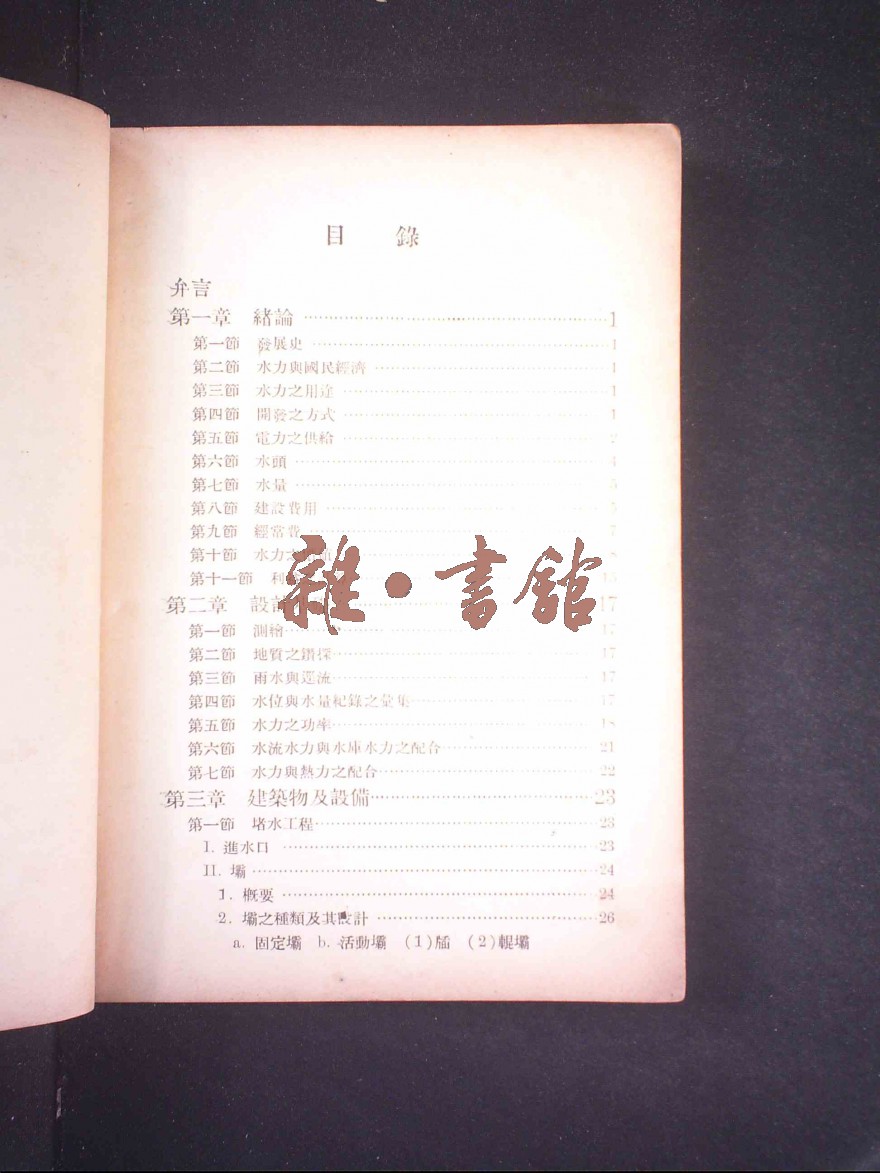 目錄
弁言
第一章 緒論 1
第一節 發展史 1
第二節 水力與國民經濟 1
第三節 水力之用途 1
第四節 開發之方式 1
第五節 電力之供給 2
第六節 水頭
第七節 水量
第八節 建設費用
第九節 經常費 7
第十節 水力之
第十一節 利
第二章 設 17
第一節 測繪 17
第二節 地質之鑽探 17
第三節 雨水與逕流 17
第四節 水位與水量紀錄之彙集 17
第五節 水力之功率 18
第六節 水流水力與水庫水力之配合 21
第七節 水力與熱力之配合 22
第三章 建築物及設備 23
第一節 堵水工程 23
I. 進水口 23
II. 壩 24
1. 概要 24
2. 壩之種類及其設計 26
a. 固定壩 b. 活動壩 (1) (2)輥壩
雜·書館